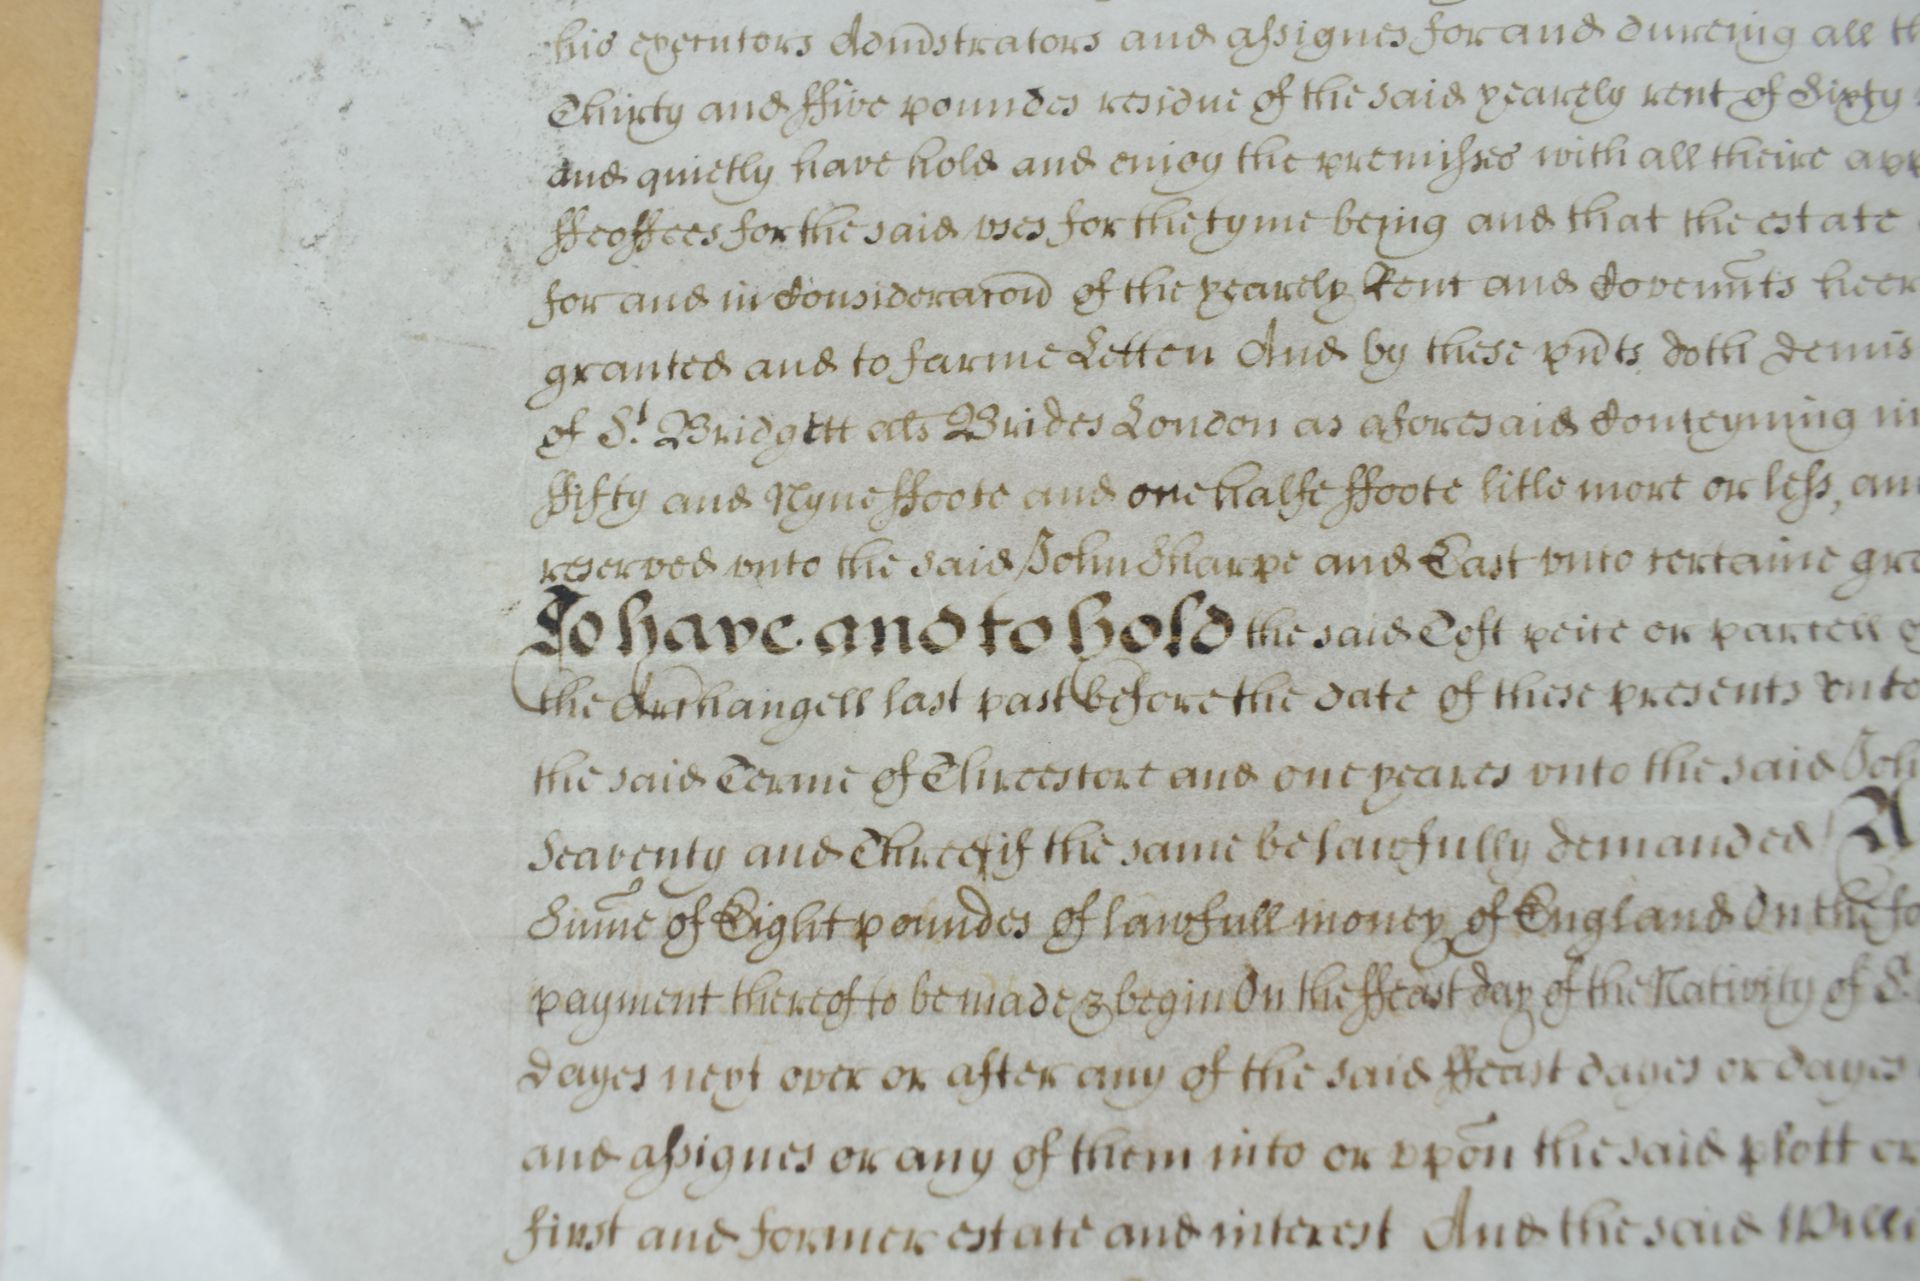 his executors Admstrators and assignes for and dureing all th
Thirty and ffive poundes residue of the said yearely rent of Sixty
and quietly have hold and enjoy the premisses with all theire app
ffeoffees for the said uses for the tyme being and that the estate
for and in Consideracon of the yearely Rent and Covenants heer
granted and to farme Letten And by these pnts doth demis
of St. Bridgett als Brides London as aforesaid Conteyning in
ffifty and Nyne ffoote and one halfe ffoote litle more or less, an
reserved vnto the said John Sharpe and East vnto certaine gro
To have and to hold the said Toft peice or parcell o
the Archangell last past before the date of these presents vnto
the said Terme of Threescore and one yeares vnto the said Joh
Seaventy and Three if the same be lawfully demanded A
Sume of Eight poundes of lawfull money of England On the fo
payment thereof to be made & begin On the ffeast day of the Nativity of S.
dayes next over or after any of the said ffeast dayes or dayes
and assignes or any of them into or vpon the said plott or
first and former estate and interest And the said Willi